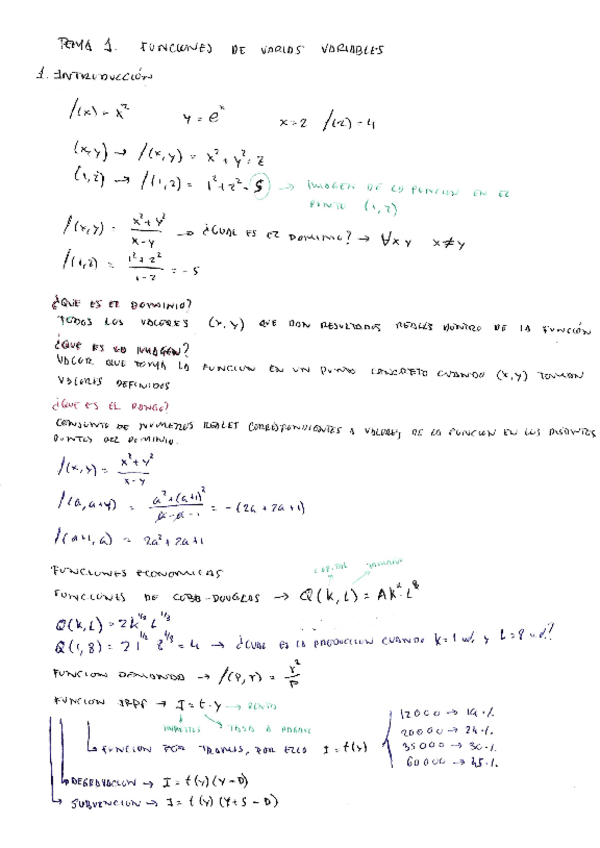 TEMA 1. FUNCIONES DE VARIAS VARIABLES
1. INTRODUCCIÓN
f(x) = x² y = eˣ x=2 f(2)=4
(x,y) → f(x,y) = x² + y² = z
(1,2) → f(1,2) = 1²+2² = 5 → IMAGEN DE LA FUNCION EN EL
PUNTO (1,2)
f(x,y) = x²+y² / x-y → ¿CUAL ES EL DOMINIO? → ∀x y x≠y
f(1,2) = 1²+2² / 1-2 = -5
¿QUE ES EL DOMINIO?
TODOS LOS VALORES (x,y) QUE DAN RESULTADOS REALES DENTRO DE LA FUNCIÓN
¿QUE ES LA IMAGEN?
VALOR QUE TOMA LA FUNCION EN UN PUNTO CONCRETO CUANDO (x,y) TOMAN
VALORES DEFINIDOS
¿QUE ES EL RANGO?
CONJUNTO DE NUMEROS REALES CORRESPONDIENTES A VALORES DE LA FUNCION EN LOS DISTINTOS
PUNTOS DEL DOMINIO.
f(x,y) = x²+y² / x-y
f(a,a+1) = a²+(a+1)² / a-a-1 = -(2a+2a+1)
f(a+1,a) = 2a²+2a+1
FUNCIONES ECONOMICAS
CAPITAL TRABAJO
FUNCIONES DE COBB-DOUGLAS → Q(K,L) = AK L
Q(K,L) = 2K L^1/3
Q(1,8) = 2 1 8^1/3 = 4 → ¿CUAL ES LA PRODUCCION CUANDO K=1 ud. y L=8 ud.?
FUNCION DEMANDA → f(P,Y) = Y² / P
FUNCION IRPF → I = t·y → RENTA
IMPUESTOS TASA A PAGAR
FUNCION POR TRAMOS, POR ELLO I = t(y)
12000 → 19%
20000 → 24%
35000 → 30%
60000 → 45%
→ I = t(y)(Y-D)
SUBVENCION → I = t(y)(Y+S-D)